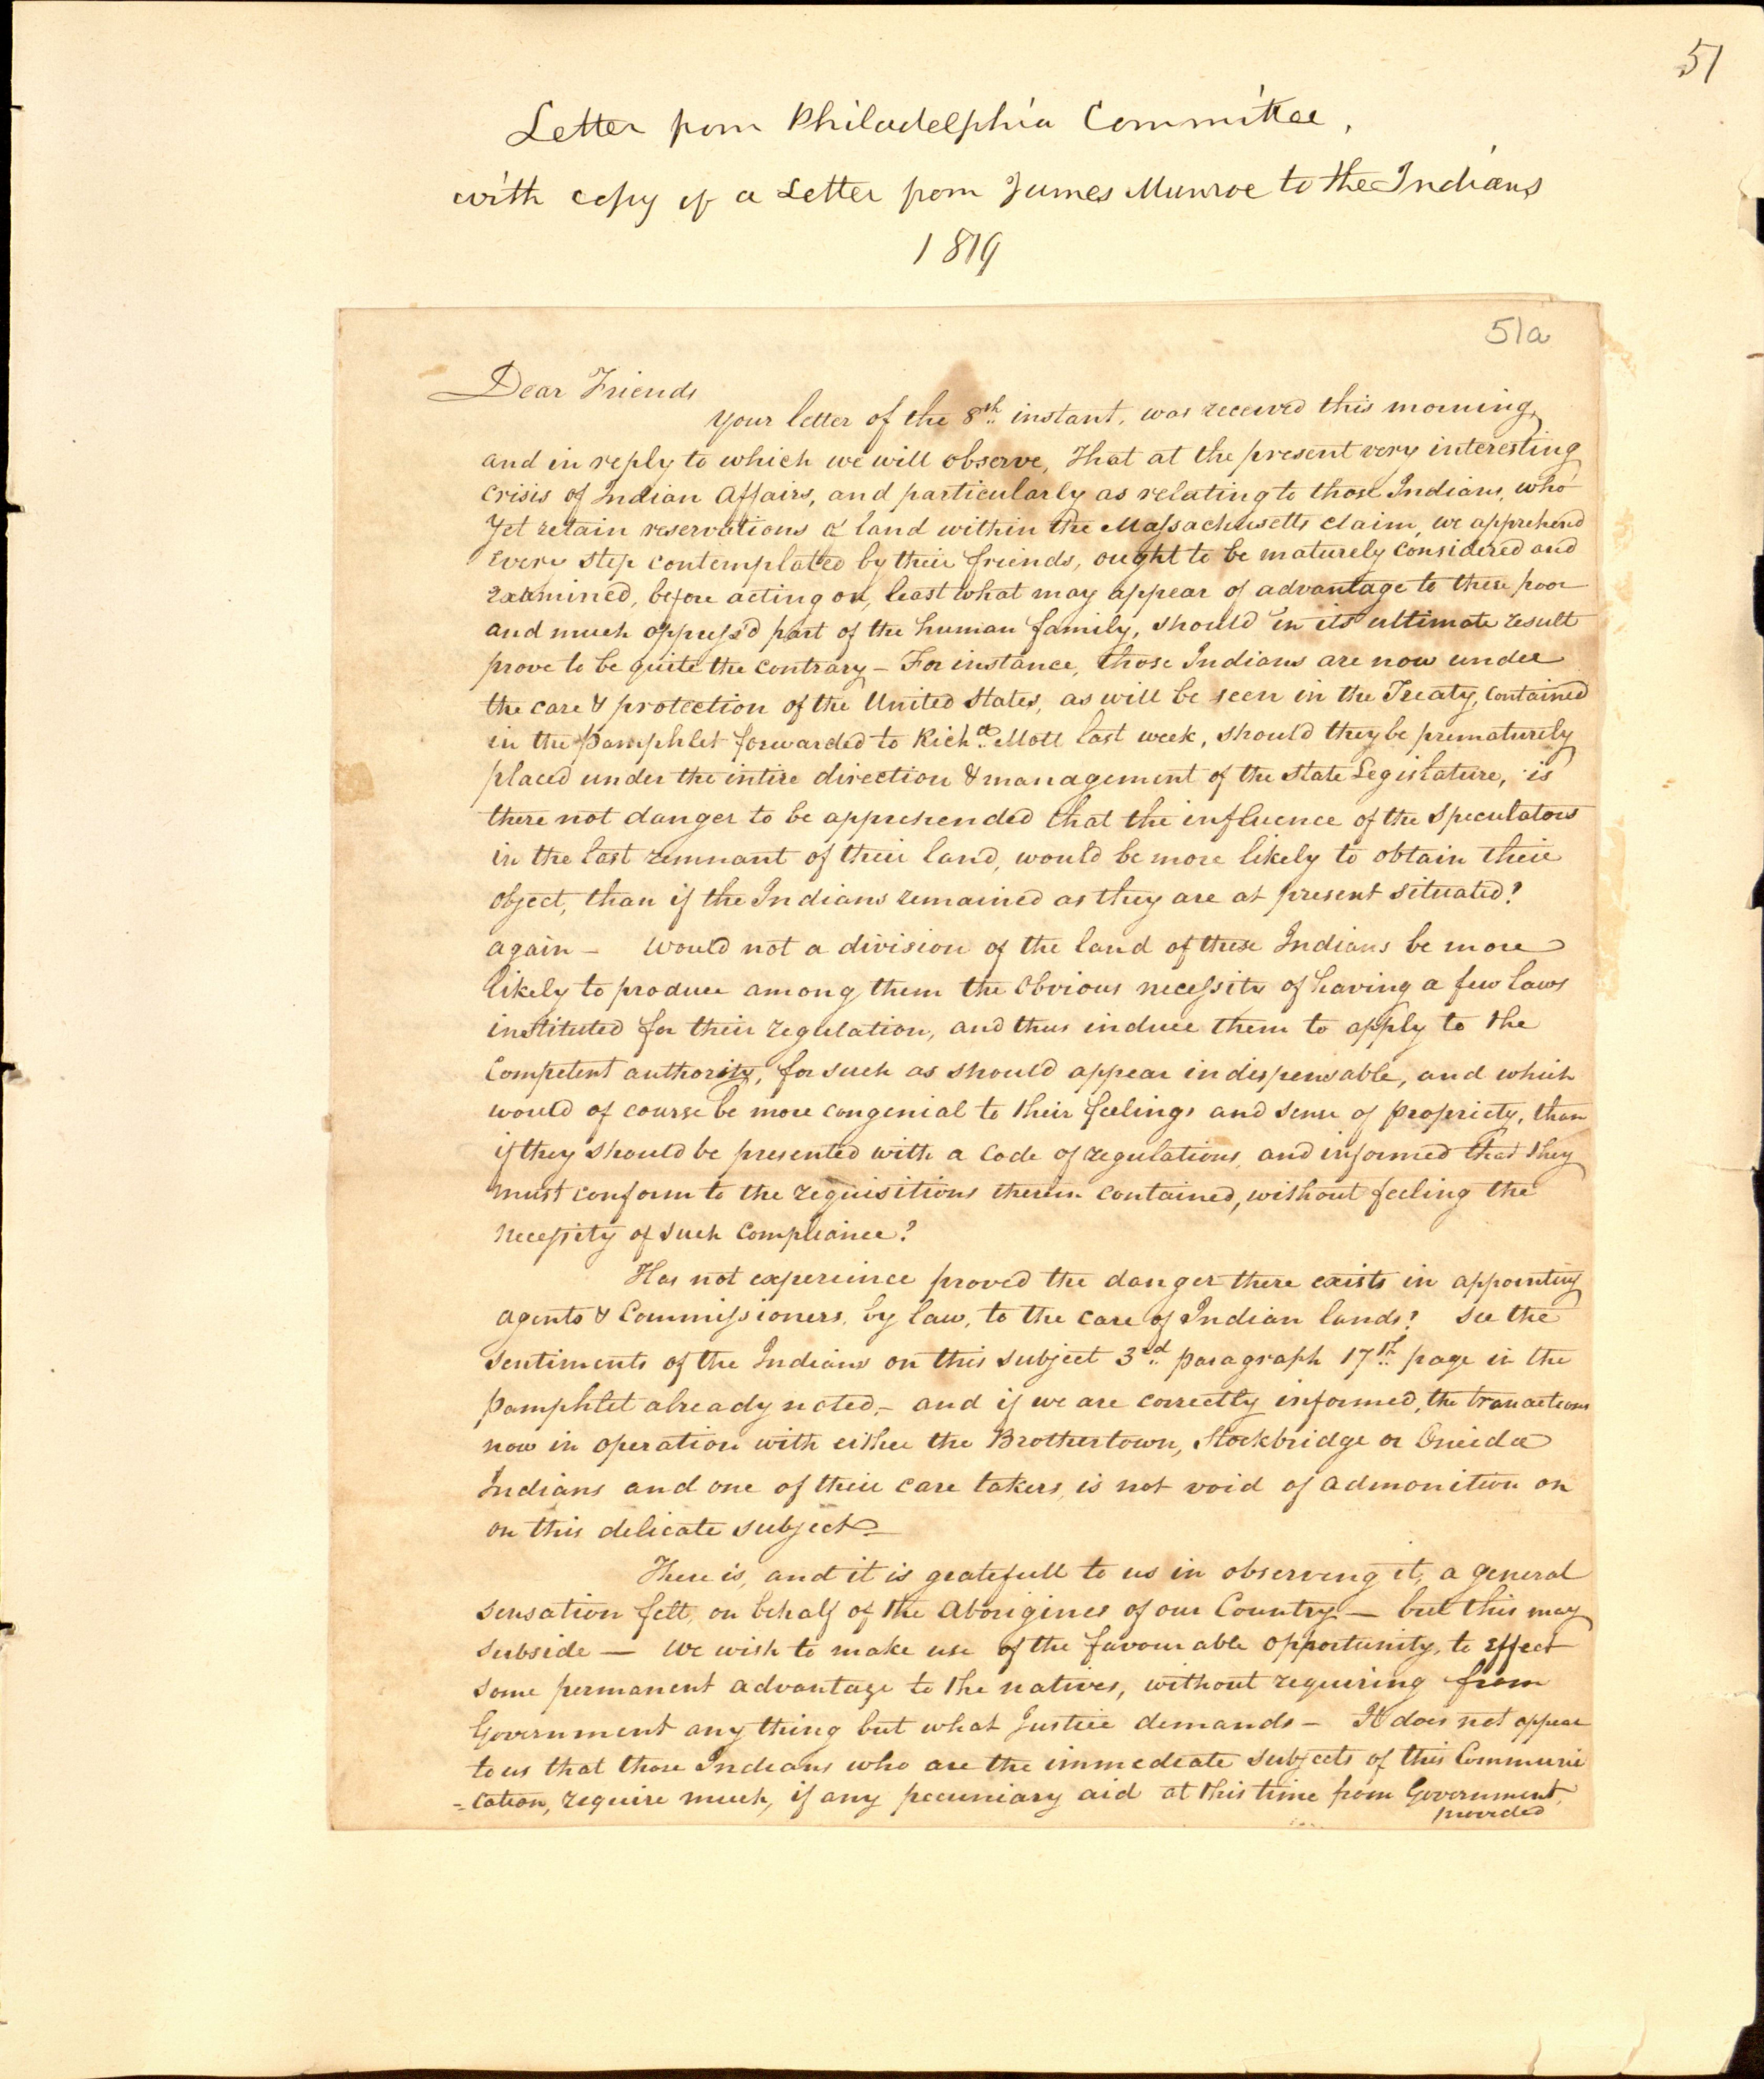 51
Letter from Philadelphia Committee,
with copy of a Letter from James Munroe to the Indians
1819
51a
Dear Friends
Your letter of the 8th instant, was received this morning,
and in reply to which we will observe, That at the present very interesting
crisis of Indian Affairs, and particularly as relating to those Indians, who
Yet retain reservations of land within the Massachusetts claim, we apprehend
every step contemplated by their friends, ought to be maturely considered and
examined, before acting on, least what may appear of advantage to these poor
and much oppress'd part of the human family, should in its ultimate result
prove to be quite the contrary – For instance, those Indians are now under
the care & protection of the United States, as will be seen in the Treaty, contained
in the Pamphlet forwarded to Richd Mott last week, should they be prematurely
placed under the intire direction & management of the State Legislature, is
there not danger to be apprehended that the influence of the Speculators
in the last remnant of their land, would be more likely to obtain their
object, than if the Indians remained as they are at present situated?
again – Would not a division of the land of these Indians be more
likely to produce among them the Obvious necessity of having a few laws
instituted for their regulation, and thus induce them to apply to the
Competent authority, for such as should appear indispensable, and which
would of course be more congenial to their feelings and sense of propriety, than
if they should be presented with a Code of regulations, and informed that they
must conform to the requisitions therein contained, without feeling the
necessity of such compliance?
Has not experience proved the danger there exists in appointing
agents & Commissioners, by law, to the care of Indian lands? See the
sentiments of the Indians on this subject 3rd paragraph 17th page in the
Pamphlet already noted, – and if we are correctly informed, the tranactions
now in operation with either the Brothertown, Stockbridge or Oneida
Indians and one of their care takers, is not void of admonition on
on this delicate subject –
There is, and it is gratefull to us in observing it, a general
sensation felt, on behalf of the Aborigines of our Country – but this may
subside – we wish to make use of the favourable opportunity, to effect
some permanent advantage to the natives, without requiring from
Government any thing but what Justice demands – It does not appear
to us that those Indians who are the immediate subjects of this Communi
=cation, require much, if any pecuniary aid at this time from Government,
provided